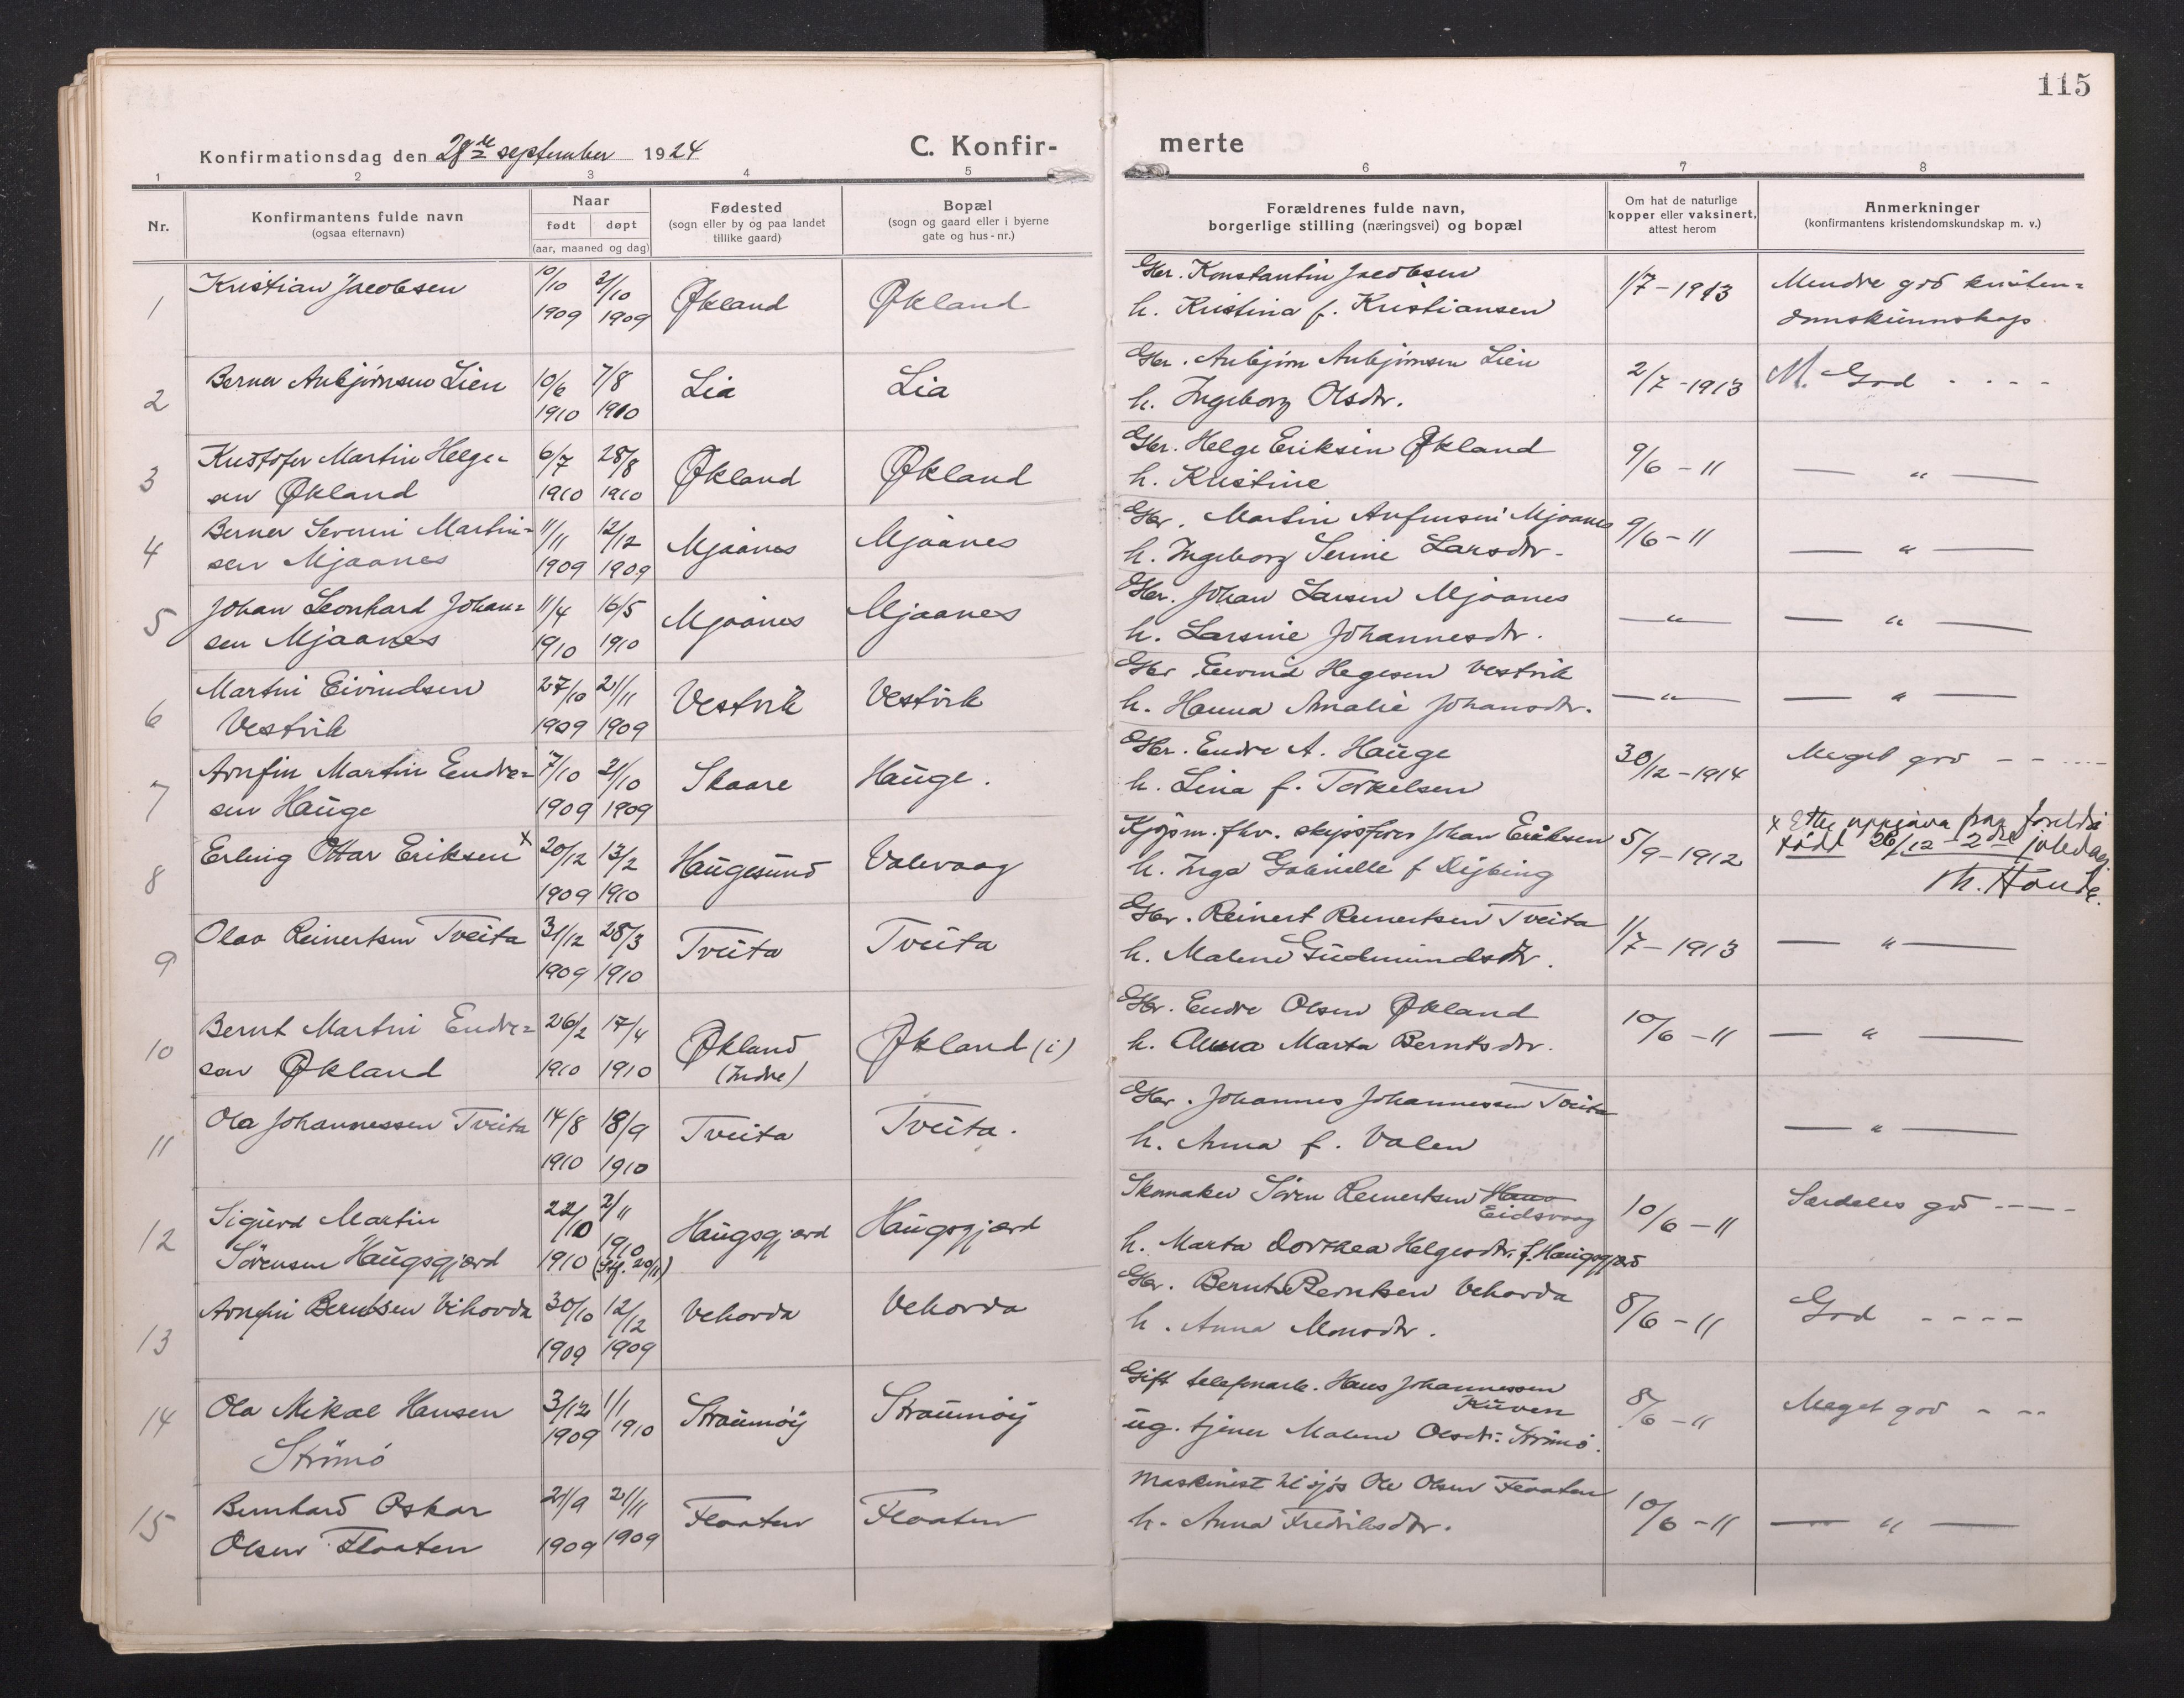 115
Konfirmationsdag den 28de september 1924
C. Konfir-
merte
1 2 3 4 5 6 7 8
Nr.
Konfirmantens fulde navn
(ogsaa efternavn)
Naar
født døpt
(aar, maaned og dag)
Fødested
(sogn eller by og paa landet
tillike gaard)
Bopæl
(sogn og gaard eller i byerne
gate og hus-nr.)
Forældrenes fulde navn,
borgerlige stilling (næringsvei) og bopæl
Om hat de naturlige
kopper eller vaksinert,
attest herom
Anmerkninger
(konfirmantens kristendomskundskap m. v.)
1 Kristian Jacobsen 10/10 1909 1909 Økland Økland
Gbr. Konstantin Jacobsen
h. Kristina f. Kristiansen
1/7-1913
Mindre god kristen=
domskunnskap
2 Berner Anbjørnsen Lien 10/6 1910 7/8 1910 Lia Lia
Gbr. Anbjørn Anbjørnsen Lien
h. Ingeborg Olsdtr.
2/7-1913
M. God - - - -
3 Kristofer Martin Helge=
sen Økland
6/7 1910 28/8 1910 Økland Økland
Gbr. Helge Eriksen Økland
h. Kristine
9/6 - 11
— " —
4 Berner Severin Martin=
sen Mjaanes
11/11 1909 12/12 1909 Mjaanes Mjaanes
Gbr. Martin Mjaanes
h. Ingeborg Serine Larsdtr.
9/6 - 11
— " —
5 Johan Leonhard Johan=
sen Mjaanes
11/4 1910 16/5 1910 Mjaanes Mjaanes
Gbr. Johan Larsen Mjaanes
h. Larsine Johannesdtr.
— " —
— " —
6 Martin Eivindsen
Vestvik
27/10 1909 21/11 1909 Vestvik Vestvik
Gbr Eivind Hegesen Vestvik
h. Hanna Amalie Johansdtr.
— " —
— " —
7 Arnfin Martin Endre=
sen Hauge
7/10 1909 21/10 1909 Skaare Hauge.
Gbr. Endre A. Hauge
h. Lina f. Torkelsen
30/12-1914
Meget god - - - -
8 Erling Ottar Eriksen x 20/12 1909 13/2 1910 Haugesund Valevaag
Kjøpm. fhv. skipsfører Johan Eriksen
h. Inga Gabrielle f
5/9-1912
x Etter uppgava fraa foreldri
født 26/12 - 2dre joledag.
Th. Hovda.
9 Olav Reinertsen Tveita 31/12 1909 28/3 1910 Tveita Tveita
Gbr. Reinert Reinertsen Tveita
h. Malene Gudmundsdtr.
1/7-1913
— " —
10 Bernt Martin Endre=
sen Økland
26/2 1910 17/4 1910 Økland
(Indre)
Økland (i)
Gbr. Endre Olsen Økland
h. Anna Marta Berntsdtr.
10/6 - 11
— " —
11 Ola Johannessen Tveita 14/8 1910 18/9 1910 Tveita Tveita.
Gbr. Johannes Johannessen Tveita
h. Anna f. Valen
— " —
12 Sigurd Martin
Sørensen Haugsgjerd
22/10 1910 2/11 1910 (Stf. 20/11) Haugsgjerd Haugsgjerd
Skomaker Søren Reinertsen Haus
Eidsvaag
h. Marta Dorthea Helgesdtr. f. Haugsgjerd
10/6 - 11
Særdeles god - - - -
13 Arnfin Berntsen Vihovda 30/10 1909 12/12 1909 Vehovda Vehovda
Gbr. Bernt Berntsen Vehovda
h. Anna Monsdtr.
8/6 - 11
God - - - -
14 Ola Mikal Hansen
Strømø
3/12 1909 1/1 1910 Straumøij Straumøij
Gift telefonarb. Hans Johannessen
Kuven
ug. tjener Malene Olsdtr. Strømø.
8/6 - 11
Meget god - - -
15 Bernhard Oskar
Olsen Floaten
21/9 1909 21/11 1909 Floaten Floaten
Maskinist til sjøs Ole Olsen Floaten
h. Anna Fredriksdtr.
10/6 - 11
— " —